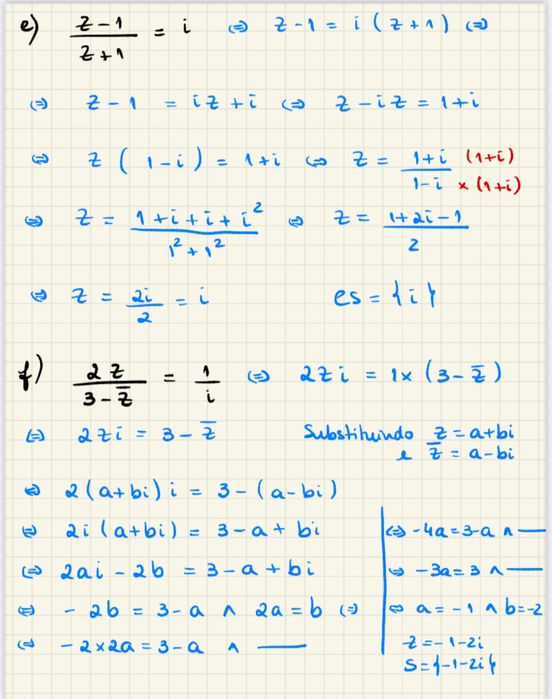 e) z-1/z+1 = i ⇔ z-1 = i(z+1) ⇔
⇔ z-1 = iz+i ⇔ z-iz = 1+i
⇔ z(1-i) = 1+i ⇔ z = 1+i/1-i (1+i)/×(1+i)
⇔ z = 1+i+i+i²/1²+1² ⇔ z = 1+2i-1/2
⇔ z = 2i/2 = i es = {i}
f) 2z/3-z̅ = 1/i ⇔ 2zi = 1×(3-z̅)
⇔ 2zi = 3-z̅ Substituindo z = a+bi
e z̅ = a-bi
⇔ 2(a+bi)i = 3-(a-bi)
⇔ 2i(a+bi) = 3-a+bi
⇔ 2ai-2b = 3-a+bi
⇔ -2b = 3-a ∧ 2a = b ⇔
⇔ -2×2a = 3-a ∧ ——
⇔ -4a = 3-a ∧ ——
⇔ -3a = 3 ∧ ——
⇔ a = -1 ∧ b = -2
z = -1-2i
S = {-1-2i}